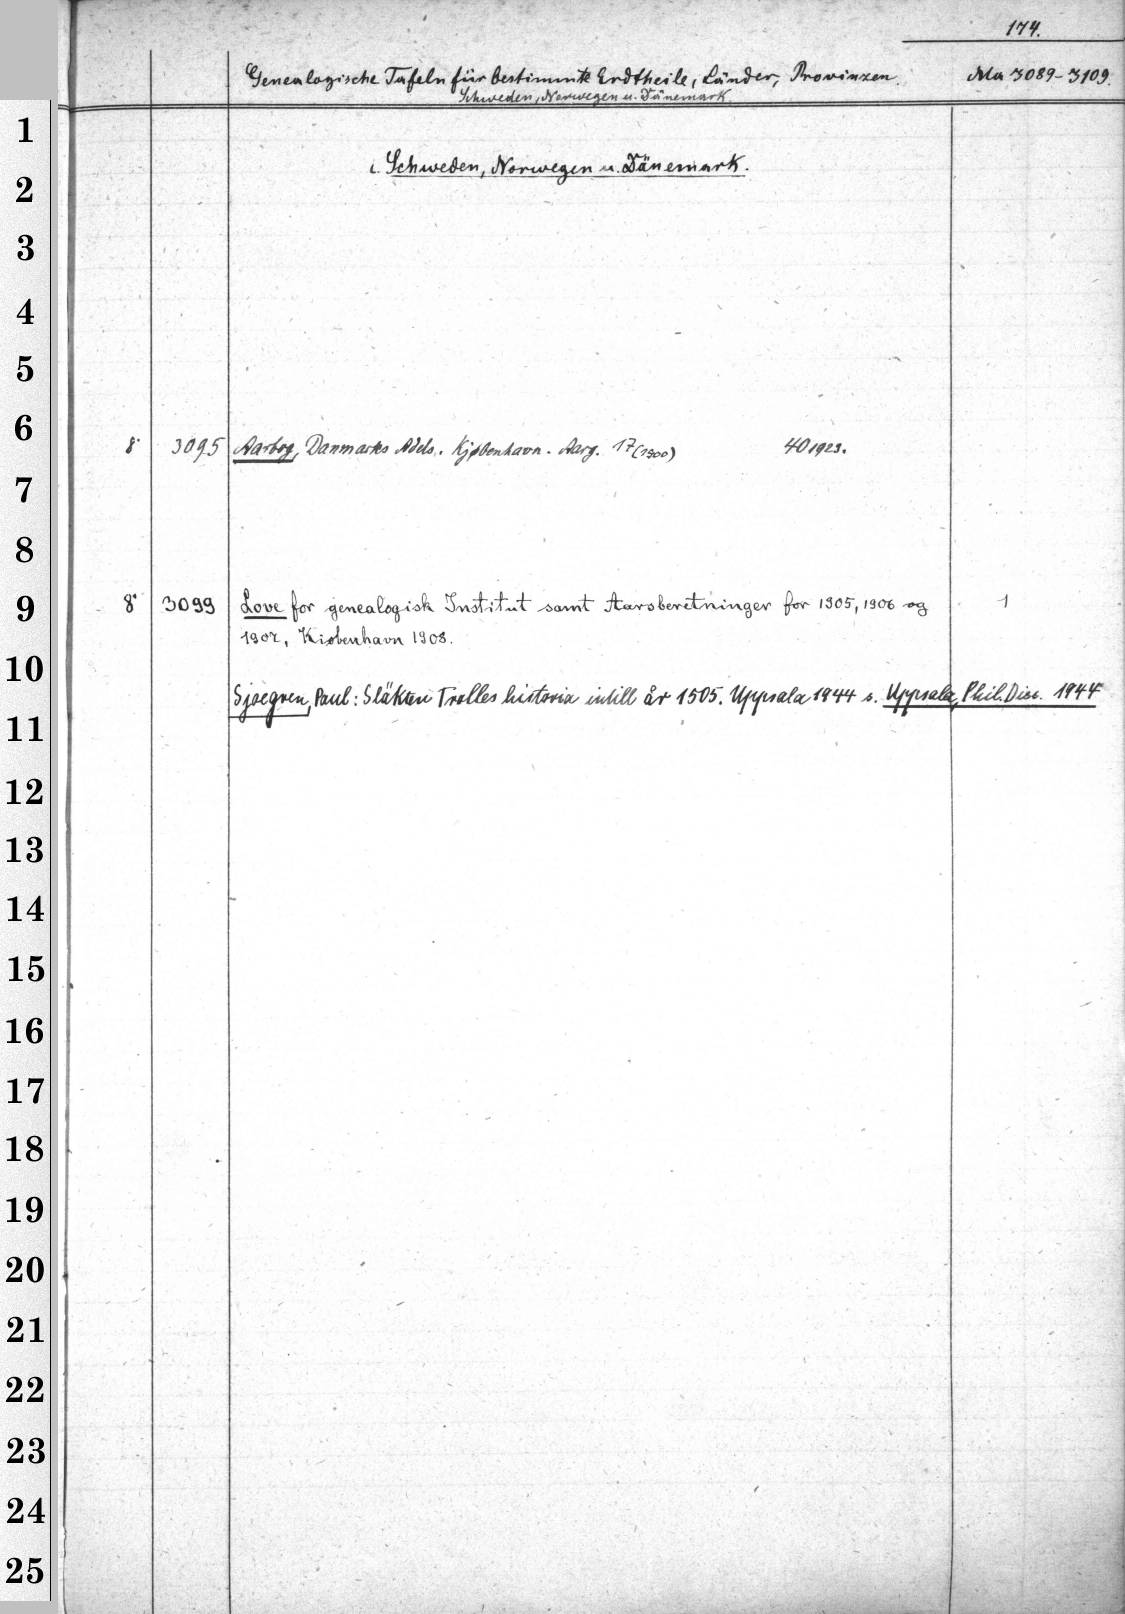 174.
Genealogische Tafeln für bestimmte Erdtheile, Länder, Provinzen. Ma 3089-3109.
Schweden, Norwegen u. Dänemark.
ι. Schweden, Norwegen u. Dänemark.
8° 3095 Aarbog, Danmarks Adels. Kjøbenhavn. Aarg. 17 (1900) 40 1923.
8° 3099 Love for genealogisk Institut samt Aarsberetninger for 1905, 1906 og 1
1907, Kiøbenhavn 1908.
Sjoegren, Paul: Släkten Trolles historia intill år 1505. Uppsala 1944 s. Uppsala, Phil. Diss. 1944
1
2
3
4
5
6
7
8
9
10
11
12
13
14
15
16
17
18
19
20
21
22
23
24
25